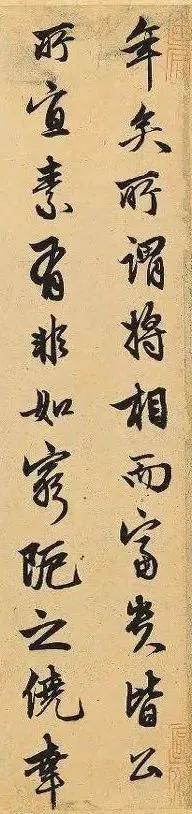 年矣所謂將相而富貴皆公
所宜素有非如窮阨之僥幸